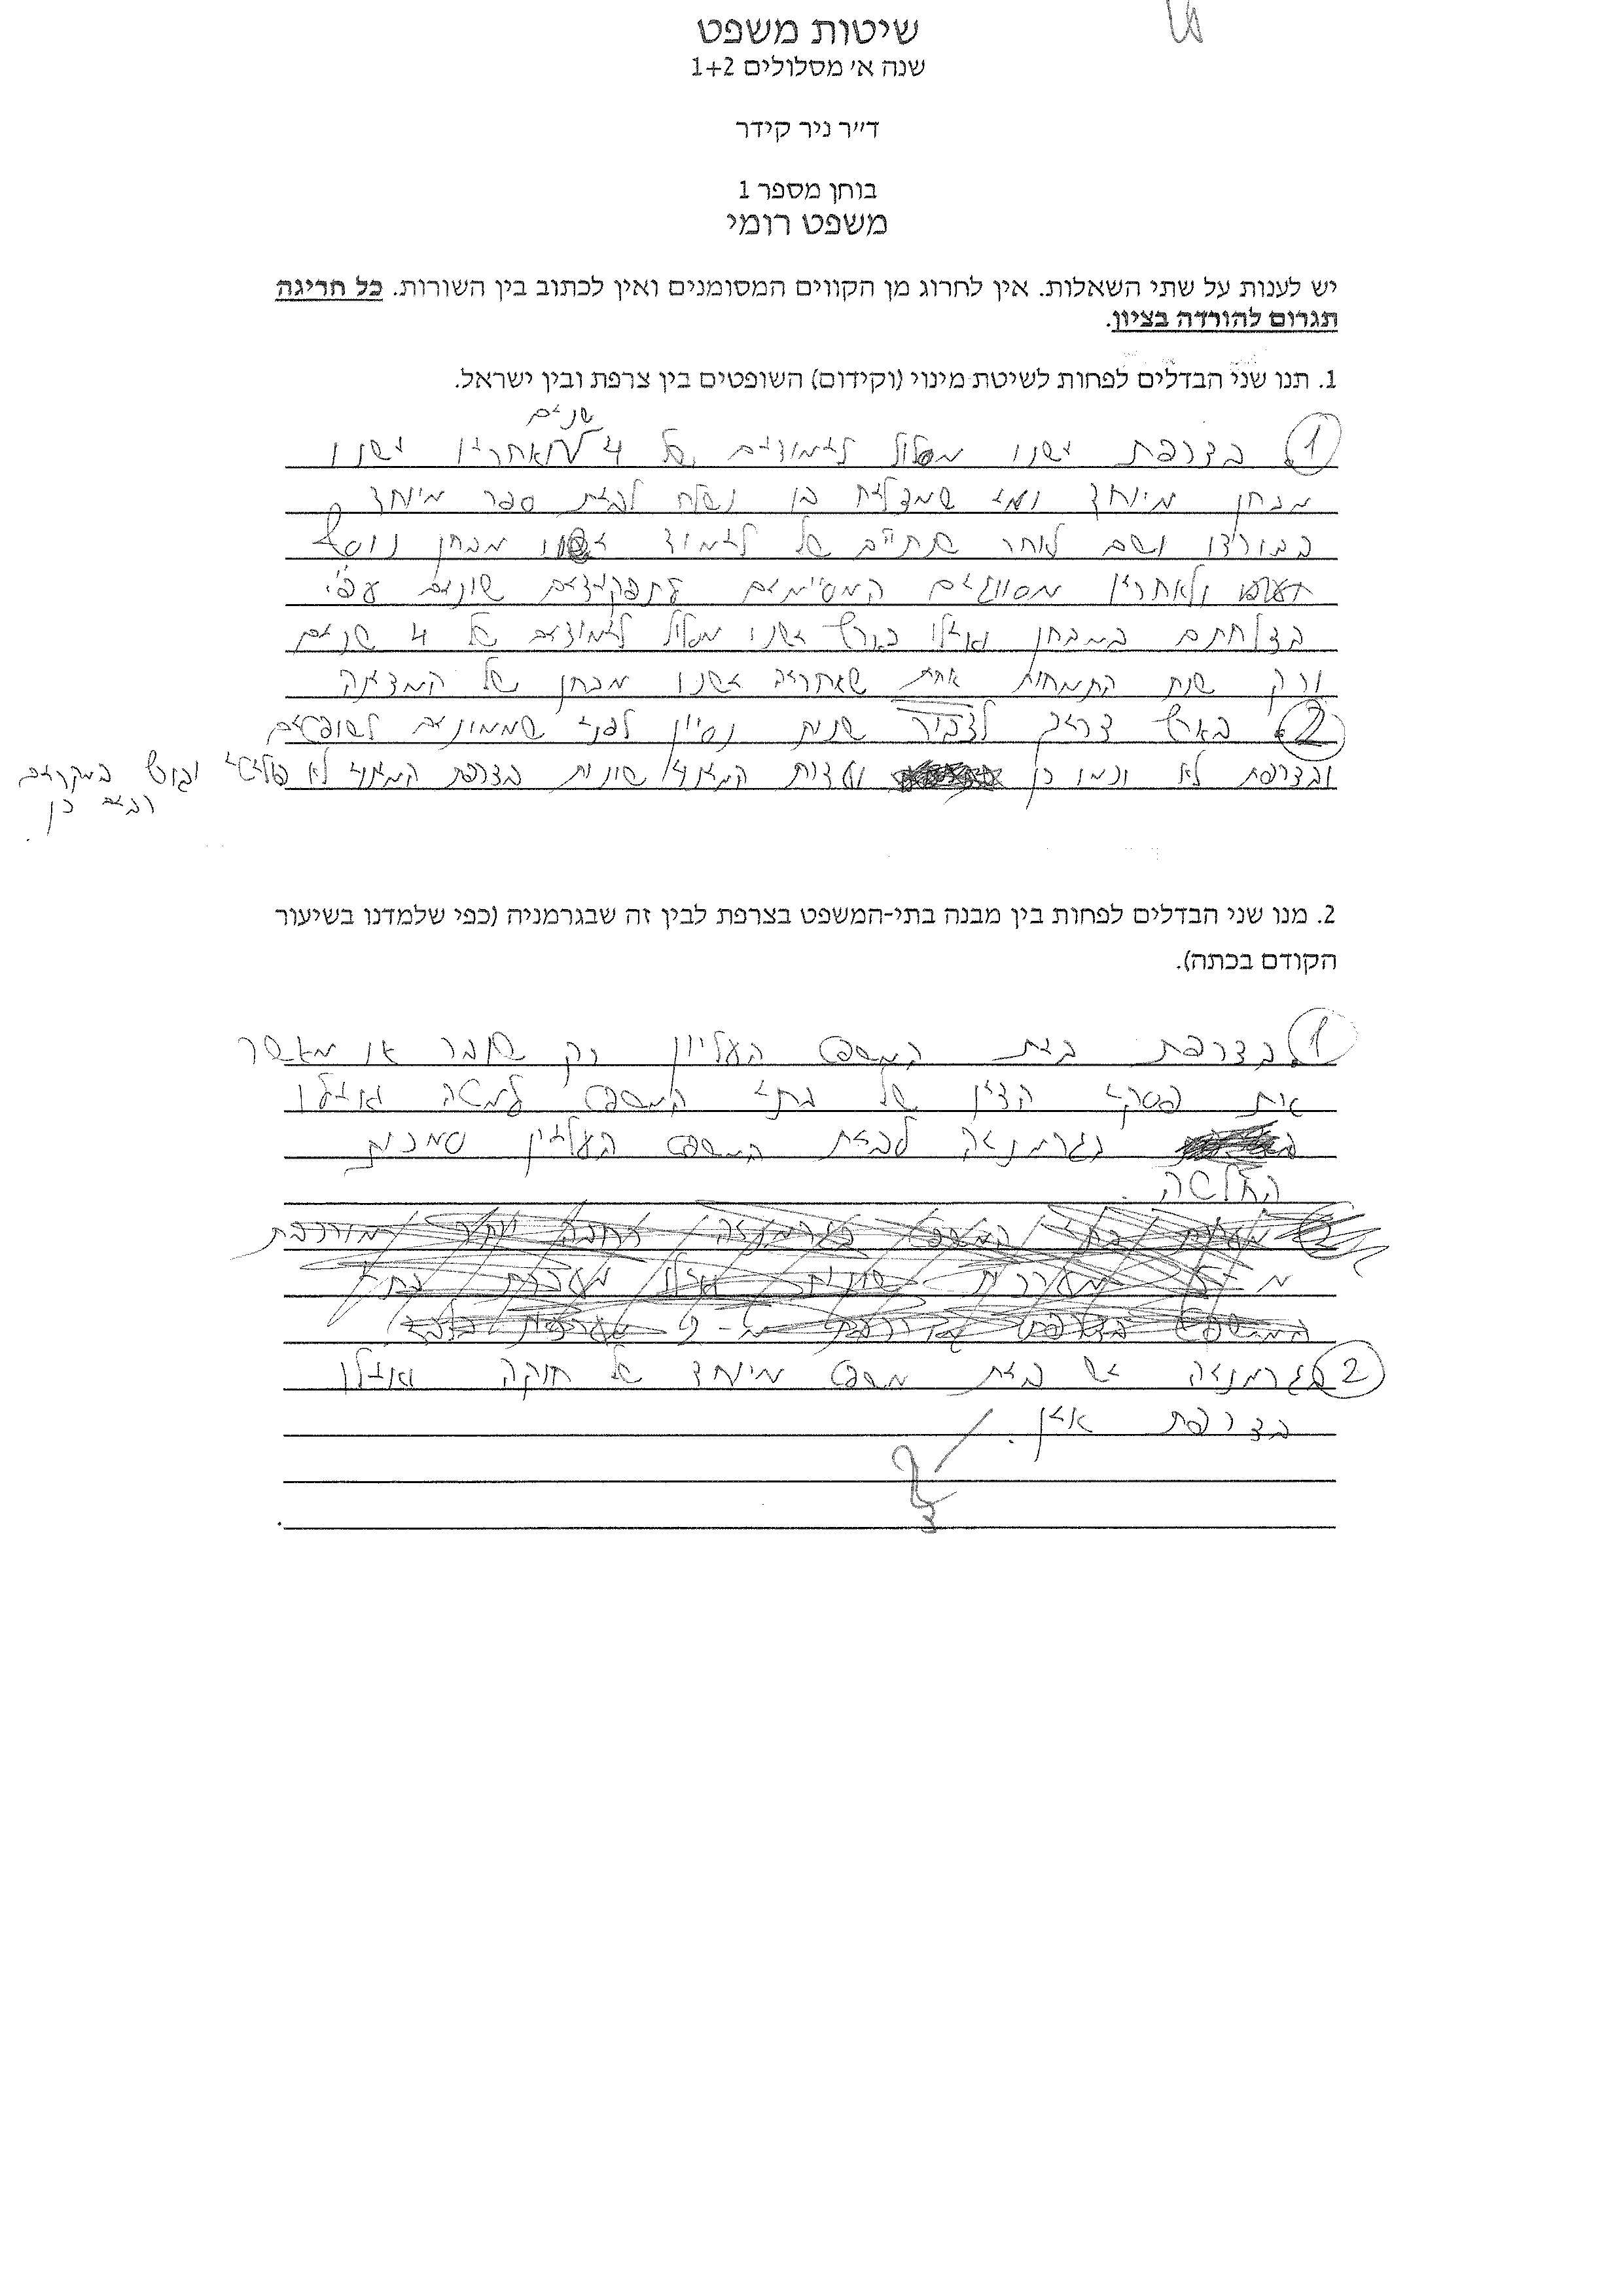 שיטות משפט
שנה א' מסלולים 1+2
ד"ר ניר קידר
בוחן מספר 1
משפט רומי
יש לענות על שתי השאלות. אין לחרוג מן הקווים המסומנים ואין לכתוב בין השורות. כל חריגה
תגרום להורדה בציון.
1. תנו שני הבדלים לפחות לשיטת מינוי (וקידום) השופטים בין צרפת ובין ישראל.
שנים
1 בצרפת ישנו מסלול לימודים של 4 ואחריו ישנו
מבחן מיוחד ומי שמצליח בו נשלח לבית ספר מיוחד
בבורדו ושם לאחר שנתיים של לימוד ישנו מבחן נוסף
ולאחריו מסווגים המסיימים לתפקידים שונים עפ"י
הצלחתם במבחן ואילו בארץ ישנו מסלול לימודים של 4 שנים
ורק שנת התמחות אחת שאחריה ישנו מבחן של המדינה
2 בארץ צריך לצבור שנות נסיון לפני שממונים לשופטים
ובצרפת לא וכמו כן ועדות המינוי שונות בצרפת המינוי לא פוליטי ובארץ במקרים
רבים כן.
2. מנו שני הבדלים לפחות בין מבנה בתי-המשפט בצרפת לבין זה שבגרמניה (כפי שלמדנו בשיעור
הקודם בכתה).
1 בצרפת בית המשפט העליון רק שובר או מאשר
את פסקי הדין של בתי המשפט למטה ואילו
בגרמניה לבית המשפט העליון סמכות
החלטה.
2 בגרמניה יש בית משפט מיוחד של חוקה ואילו
בצרפת אין.